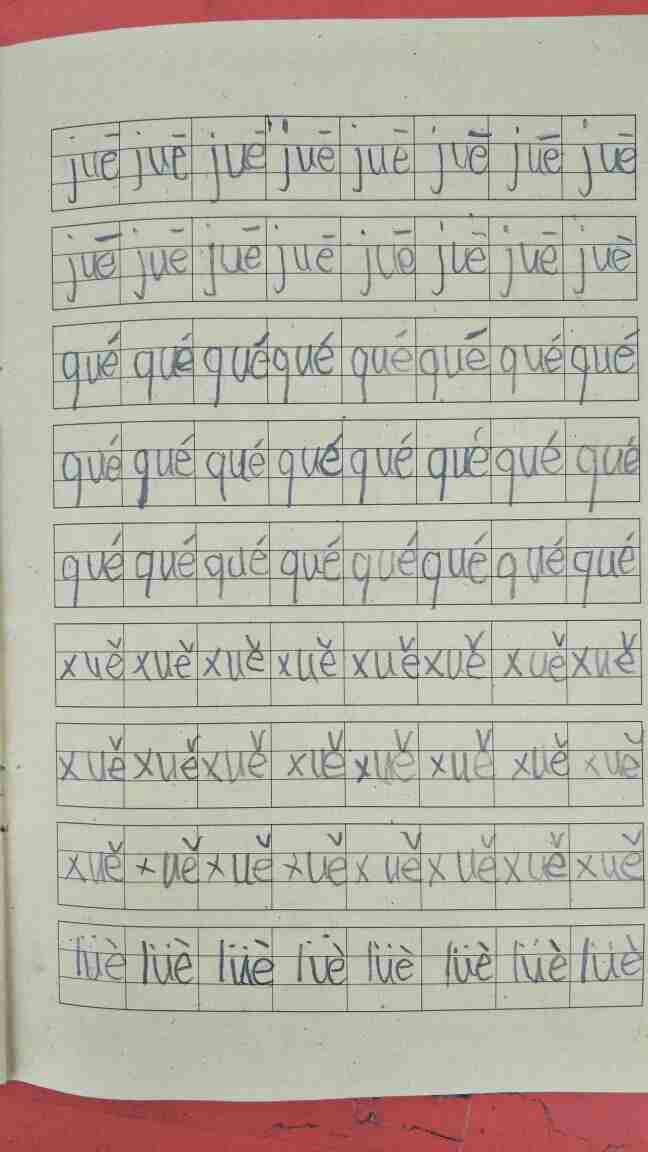 juē juē juē juē juē juē juē juē
juē juē juē juē juē juē juē juē
qué qué qué qué qué qué qué qué
qué qué qué qué qué qué qué qué
qué qué qué qué qué qué qué qué
xuě xuě xuě xuě xuě xuě xuě xuě
xuě xuě xuě xuě xuě xuě xuě xuě
xuě xuě xuě xuě xuě xuě xuě xuě
lüè lüè lüè lüè lüè lüè lüè lüè